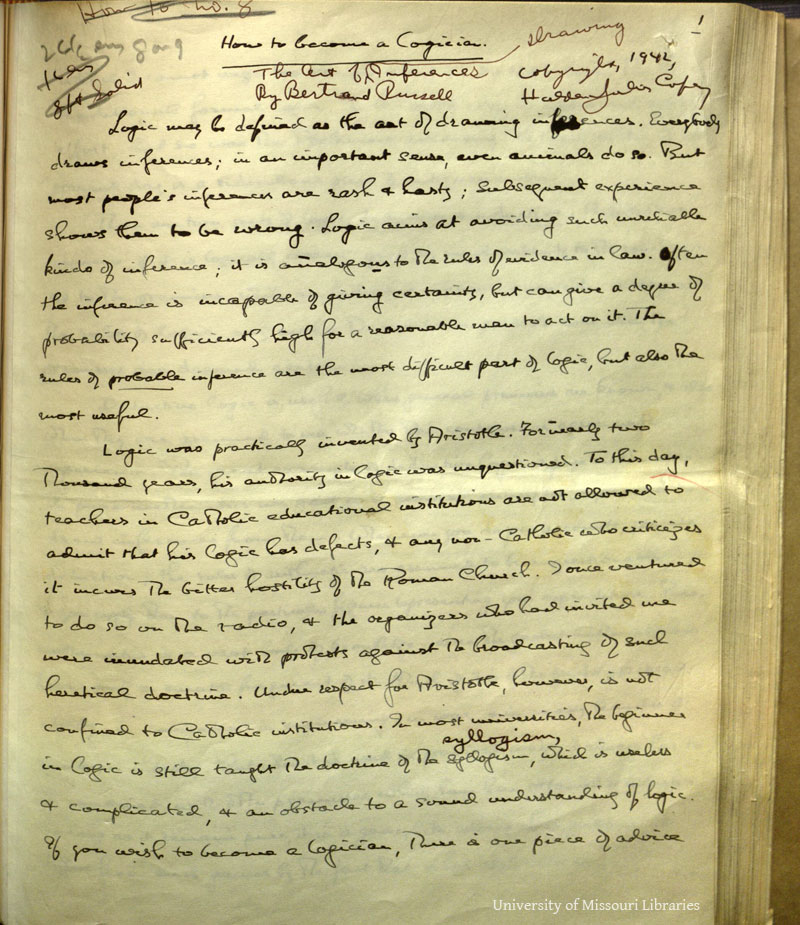 How to no. 8
1
drawing
How to become a Logician.
The Art of Inferences
By Bertrand Russell
Copyright, 1942,
Haldeman-Julius Copy
8pt Solid
Logic may be defined as the art of drawing inferences. Everybody
draws inferences; in an important sense, even animals do so. But
most people's inferences are rash & hasty; subsequent experience
shows them to be wrong. Logic aims at avoiding such unreliable
kinds of inference; it is analogous to the rules of evidence in law. Often
the inference is incapable of giving certainty, but can give a degree of
probability sufficiently high for a reasonable man to act on it. The
rules of probable inference are the most difficult part of logic, but also the
most useful.
Logic was practically invented by Aristotle. For nearly two
thousand years, his authority in logic was unquestioned. To this day,
teachers in Catholic educational institutions are not allowed to
admit that his logic has defects, & any non-Catholic who criticizes
it incurs the bitter hostility of the Roman Church. I once ventured
to do so on the radio, & the organizers who had invited me
were inundated with protests against the broadcasting of such
heretical doctrine. Undue respect for Aristotle, however, is not
confined to Catholic institutions. In most universities, the beginner
syllogism,
in logic is still taught the doctrine of the syllogism, which is useless
& complicated, & an obstacle to a sound understanding of logic.
If you wish to become a logician, there is one piece of advice
University of Missouri Libraries